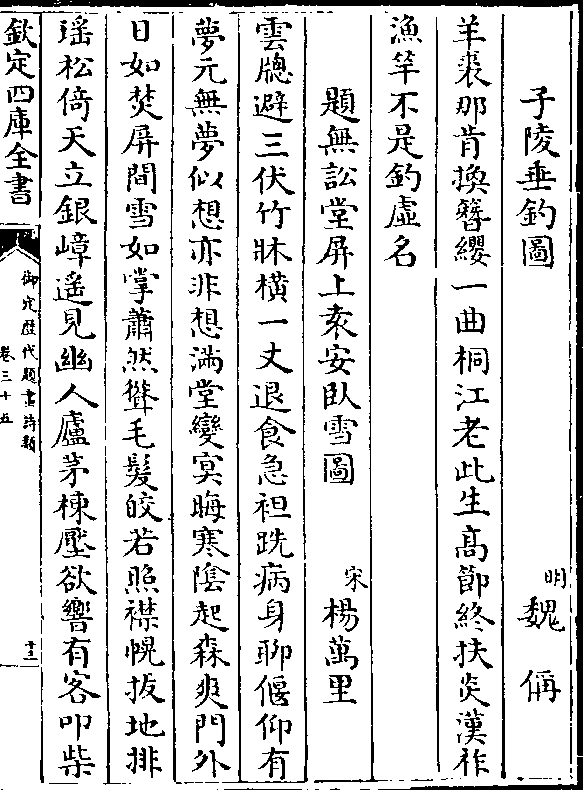 子陵垂釣圖　明魏偁
羊裘那肯換簪纓一曲桐江老此生高節終扶炎漢祚
漁竿不是釣虛名
題無訟堂屏上袁安臥雪圖　宋楊萬里
雲牕避三伏竹牀橫一丈退食急袒跣病身聊偃仰有
夢元無夢似想亦非想滿堂變冥晦寒陰起森爽門外
日如焚屏間雪如掌蕭然聳毛髮皎若照襟幌拔地排
瑤松倚天立銀嶂遥見幽人廬茅棟壓欲響有客叩柴
欽定四庫全書
御定歴代題畫詩類
卷三十五
十三